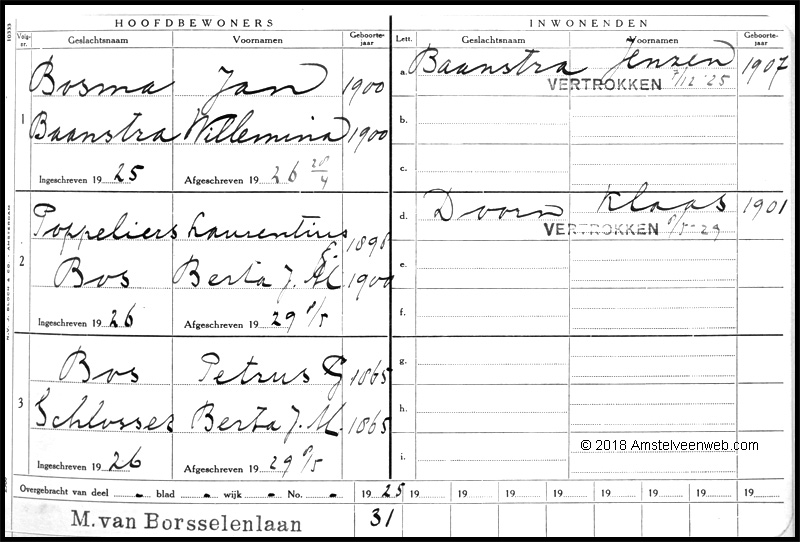 HOOFDBEWONERS INWONENDEN
Volg-nr. Geslachtsnaam Voornamen Geboorte-jaar Lett. Geslachtsnaam Voornamen Geboorte-jaar
Bosma Jan 1900 a. Baanstra Jenzen 1907
VERTROKKEN 7/12 '25
1 b.
Baanstra Willemina 1900
c.
Ingeschreven 19 25 Afgeschreven 19 26 28/4
d. Doorn Klaas 1901
Poppeliers Laurentius 1898 VERTROKKEN 8/5-29
2 E. e.
Bos Berta J. M. 1900
f.
Ingeschreven 19 26 Afgeschreven 19 29 8/5
g.
Bos Petrus G 1865
3 h.
Schlosser Berta J. M. 1865
© 2018 Amstelveenweb.com
Ingeschreven 19 26 Afgeschreven 19 29 8/5 i.
Overgebracht van deel - blad - wijk - No. - 19 25 19 19 19 19 19 19 19 19
M. van Borsselenlaan 31
10333
N.V. J. BLOCH & CO. - AMSTERDAM